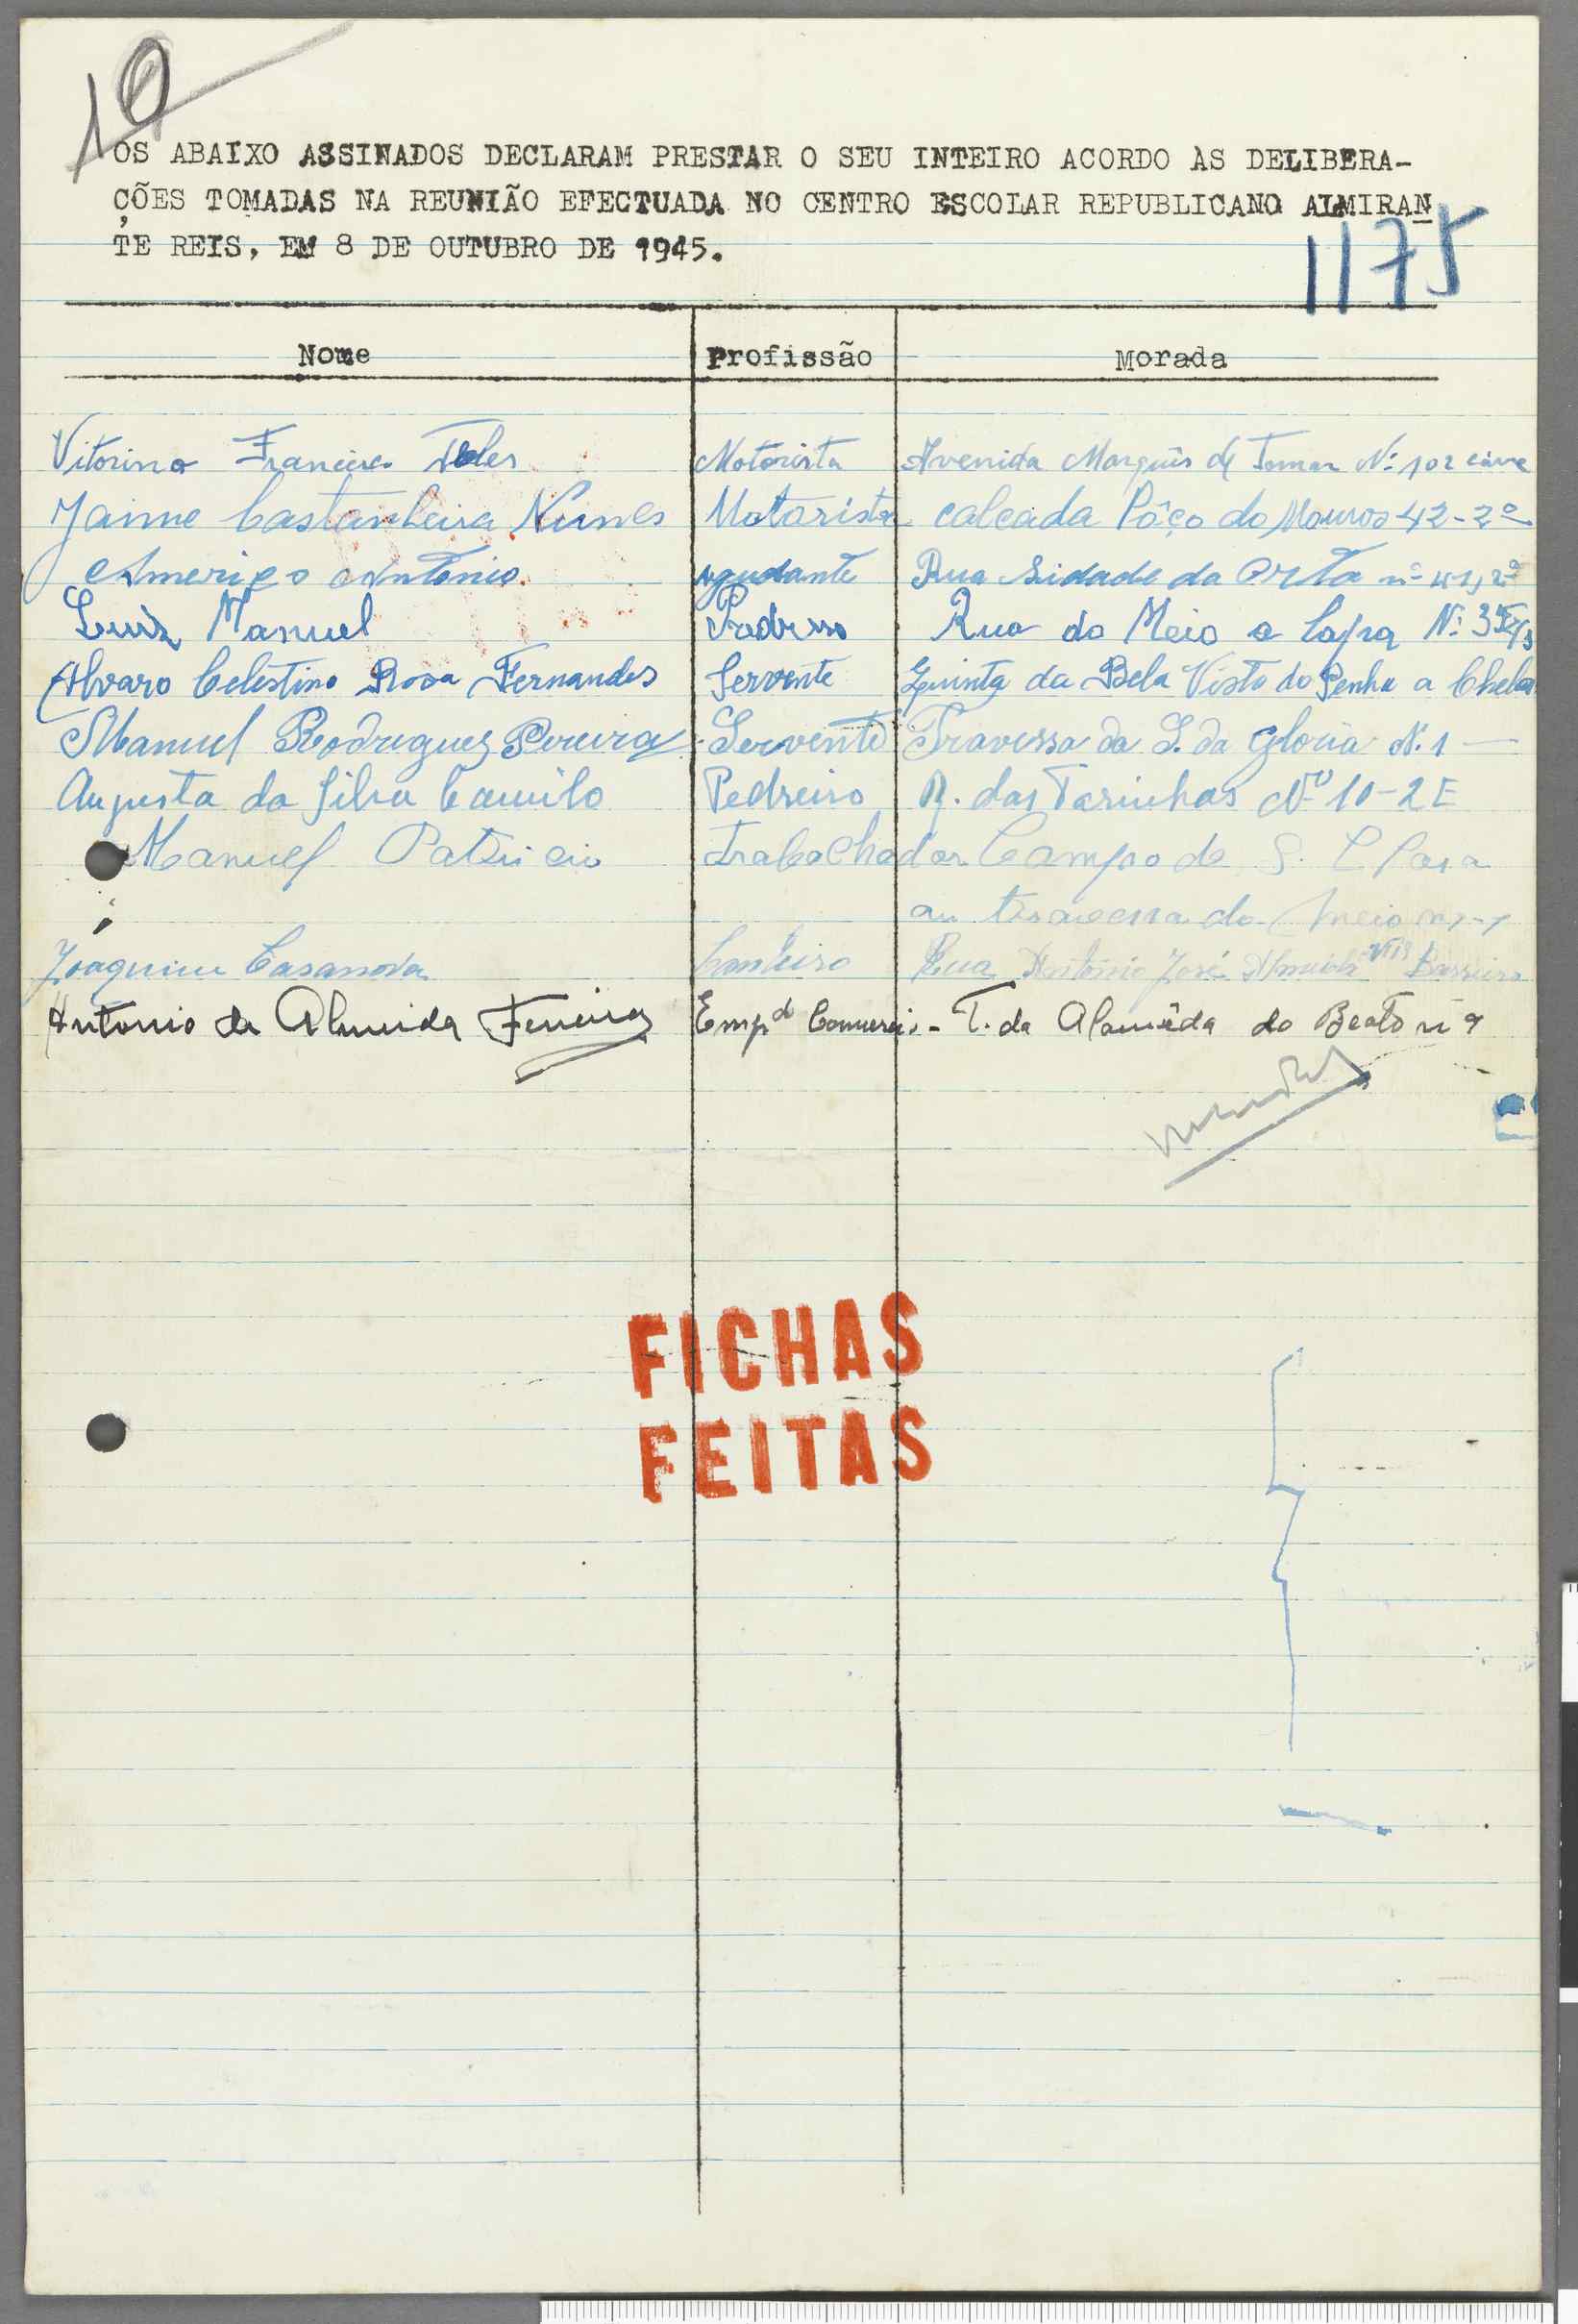 10
OS ABAIXO ASSINADOS DECLARAM PRESTAR O SEU INTEIRO ACORDO ÀS DELIBERA-
ÇÕES TOMADAS NA REUNIÃO EFECTUADA NO CENTRO ESCOLAR REPUBLICANO ALMIRAN
TE REIS, EM 8 DE OUTUBRO DE 1945.
1175
Nome Profissão Morada
Vitorino Francisco Teles Motorista Avenida Marquês de Tomar Nº 102 cave
Jaime Castanheira Nunes Motorista calcada Pôço do Mouros 42-2º
Americo Antonio agudante Rua Sidade da Orta nº 41, 2º
Luiz Manuel Rua do Meio a Lapa Nº
Alvaro Celestino Rosa Fernandes Servente Quinta da Bela Vista do Penha a Chelas
Manuel Rodrigues Pereira Servente Travessa da S. da Gloria N. 1
Augusta da Silva Camilo Pedreiro R. das Farinhas Nº 10-2 E
Manuel Patricio Trabalhador Campo de S. Clara
travessa do Meio
Joaquim Casanova Canteiro Rua António José Almeida Barreiro
Antonio de Almeida Ferreira Empd Comercio - T. da Alamêda do Beato nº 9
FICHAS
FEITAS